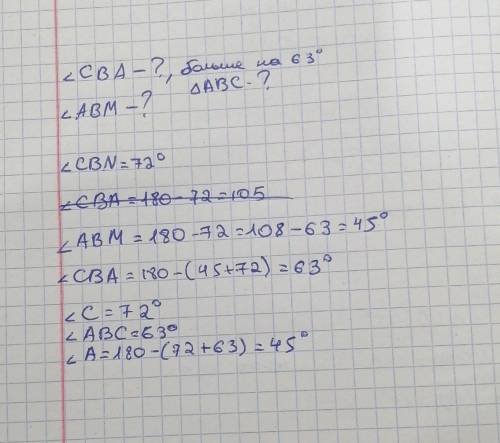 ∠CBA – ?, больше на 63°
∠ABM – ? ΔABC - ?
∠CBN = 72°
∠CBA = 180 - 72 = 105
∠ABM = 180 - 72 = 108 - 63 = 45°
∠CBA = 180 - (45 + 72) = 63°
∠C = 72°
∠ABC = 63°
∠A = 180 - (72 + 63) = 45°